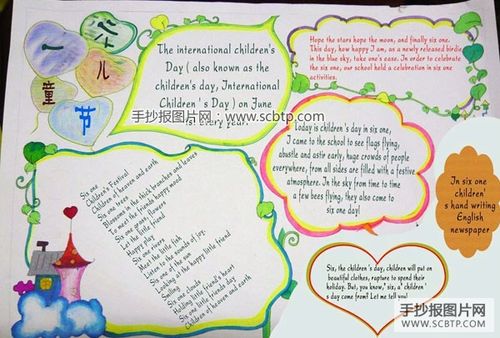 六
一
儿
童
节
The international children's
Day ( also known as the
children's day, International
Children ' s Day ) on June
is every year.
手抄报图片网：www.scbtp.com
Hope the stars hope the moon, and finally six one.
This day, how happy I am, as a newly released birdie
in the blue sky, take one's ease. In order to celebrate
the six one, our school held a celebration in six one
activities.
Today is children's day in six one,
I came to the school to see flags flying,
abustle and astir early, huge crowds of people
everywhere, from all sides are filled with a festive
atmosphere. In the sky from time to time
a few bees flying, they also come to
six one day!
In six one
children'
s hand writing
English
newspaper
Six one
Children's Festival
Children of heaven and earth
Six one trees
Blossoms in the thick branches and leaves
To meet the friends happy mood
Six one grass, flowers
Let the little friend
Happy play
Six one rivers
Meet the little fish
Listen to the sounds of joy.
Six one of the sun
Looking at the happy little friend
Smiling
Six one clouds
Holding little friend's heart
Six one little friends day
Children of heaven and earth
Six, the children's day, children will put on
beautiful clothes, rapture to spend their
holiday. But, you know," six, a' children'
s day come from? Let me tell you!
手抄报图片网
WWW.SCBTP.COM